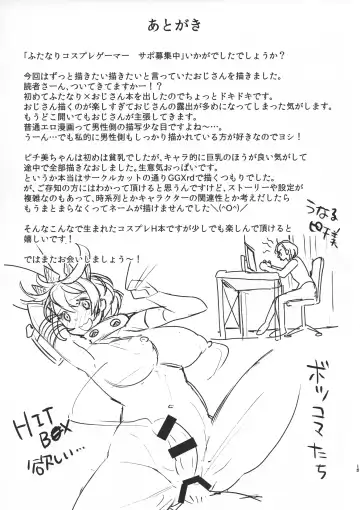 あとがき
「ふたなりコスプレゲーマー　サポ募集中」いかがでしたでしょうか？
今回はずっと描きたい描きたいと言っていたおじさんを描きました。
読者さーん、ついてきてますかー！？
初めてふたなり×おじさん本を出したのでちょっとドキドキです。
おじさん描くのが楽しすぎておじさんの露出が多めになってしまった気がします。
もうどこ開いてもおじさんが出てきます。
普通エロ漫画って男性側の描写少な目ですよね～…。
うーん…でも私的に男性側もしっかり描かれている方が好きなのでヨシ！
ピチ美ちゃんは初めは貧乳でしたが、キャラ的に巨乳のほうが良い気がして
途中で全部描きなおしました。生意気おっぱいです。
というか本当はサークルカットの通りGGXrdで描くつもりでした。
が、ご存知の方にはわかって頂けると思うんですけど、ストーリーや設定が
複雑なのもあって、時系列とかキャラクターの関連性とか考えだしたら
もうまとまらなくってネームが描けませんでした＼(^O^)／
そんなこんなで生まれたコスプレH本ですが少しでも楽しんで頂けると
嬉しいです！
ではまたお会いしましょう～！
うなる
ピチ美
ボツコマたち
HIT
BOX
欲しい…